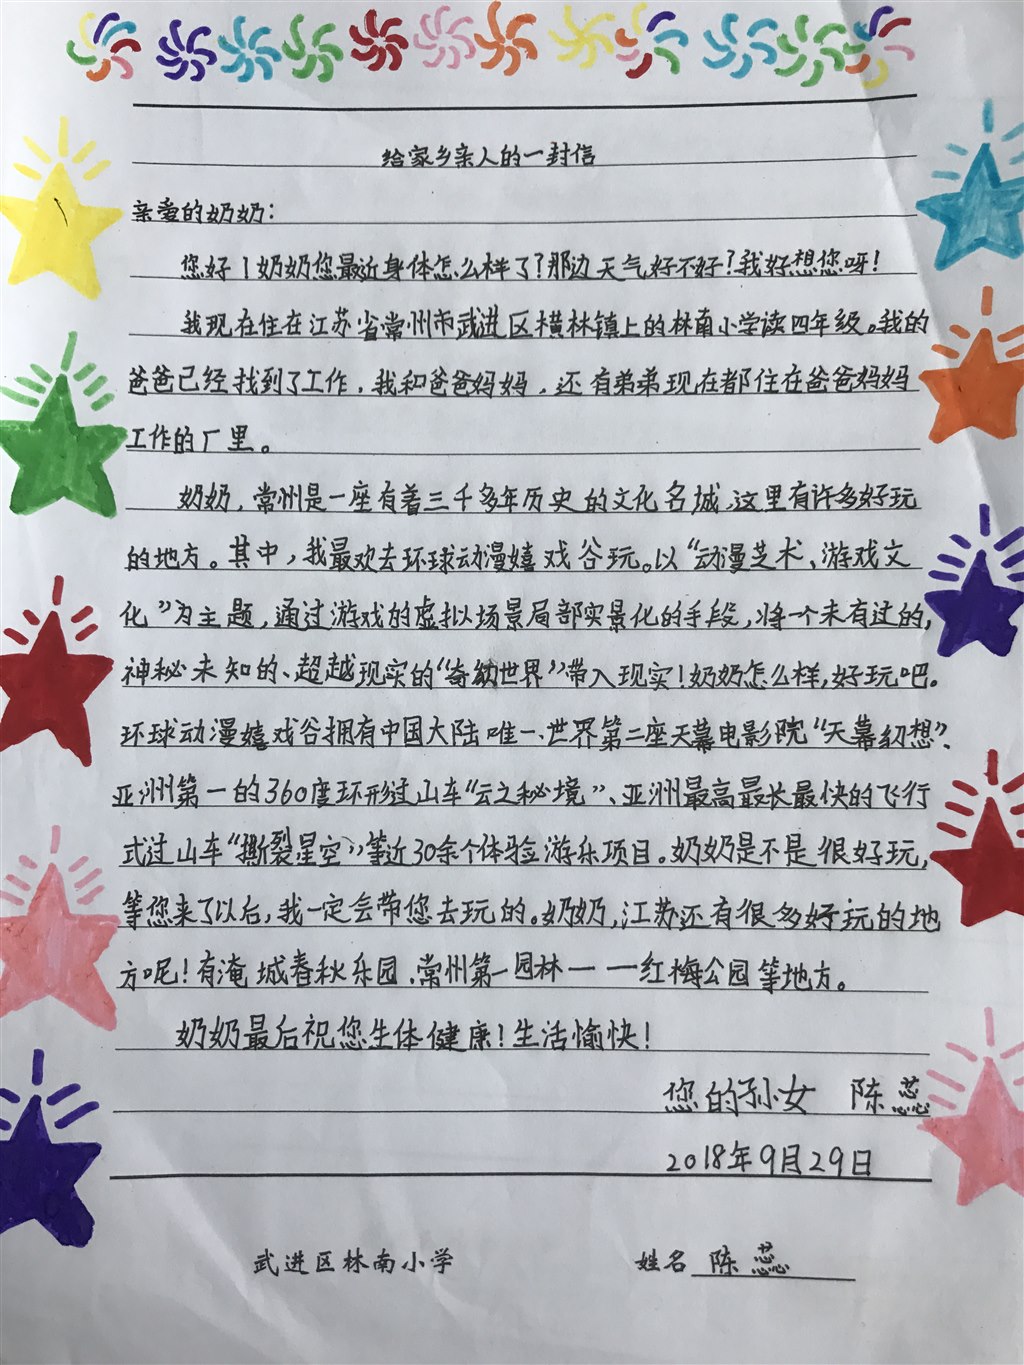 给家乡亲人的一封信
亲爱的奶奶：
您好！奶奶您最近身体怎么样了？那边天气好不好？我好想您呀！
我现在住在江苏省常州市武进区横林镇上的林南小学读四年级。我的
爸爸已经找到了工作，我和爸爸妈妈，还有弟弟现在都住在爸爸妈妈
工作的厂里。
奶奶，常州是一座有着三千多年历史的文化名城，这里有许多好玩
的地方。其中，我最欢去环球动漫嬉戏谷玩。以“动漫艺术、游戏文
化”为主题，通过游戏的虚拟场景局部实景化的手段，将一个未有过的，
神秘未知的、超越现实的“奇幼世界”带入现实！奶奶怎么样，好玩吧。
环球动漫嬉戏谷拥有中国大陆唯一、世界第二座天幕电影院“天幕幻想”、
亚洲第一的360度环形过山车“云之秘境”、亚洲最高最长最快的飞行
式过山车“撕裂星空”等近30余个体验游乐项目。奶奶是不是很好玩，
等您来了以后，我一定会带您去玩的。奶奶，江苏还有很多好玩的地
方呢！有淹城春秋乐园、常州第一园林——红梅公园等地方。
奶奶最后祝您生体健康！生活愉快！
您的孙女 陈蕊
2018年9月29日
武进区林南小学 姓名 陈蕊